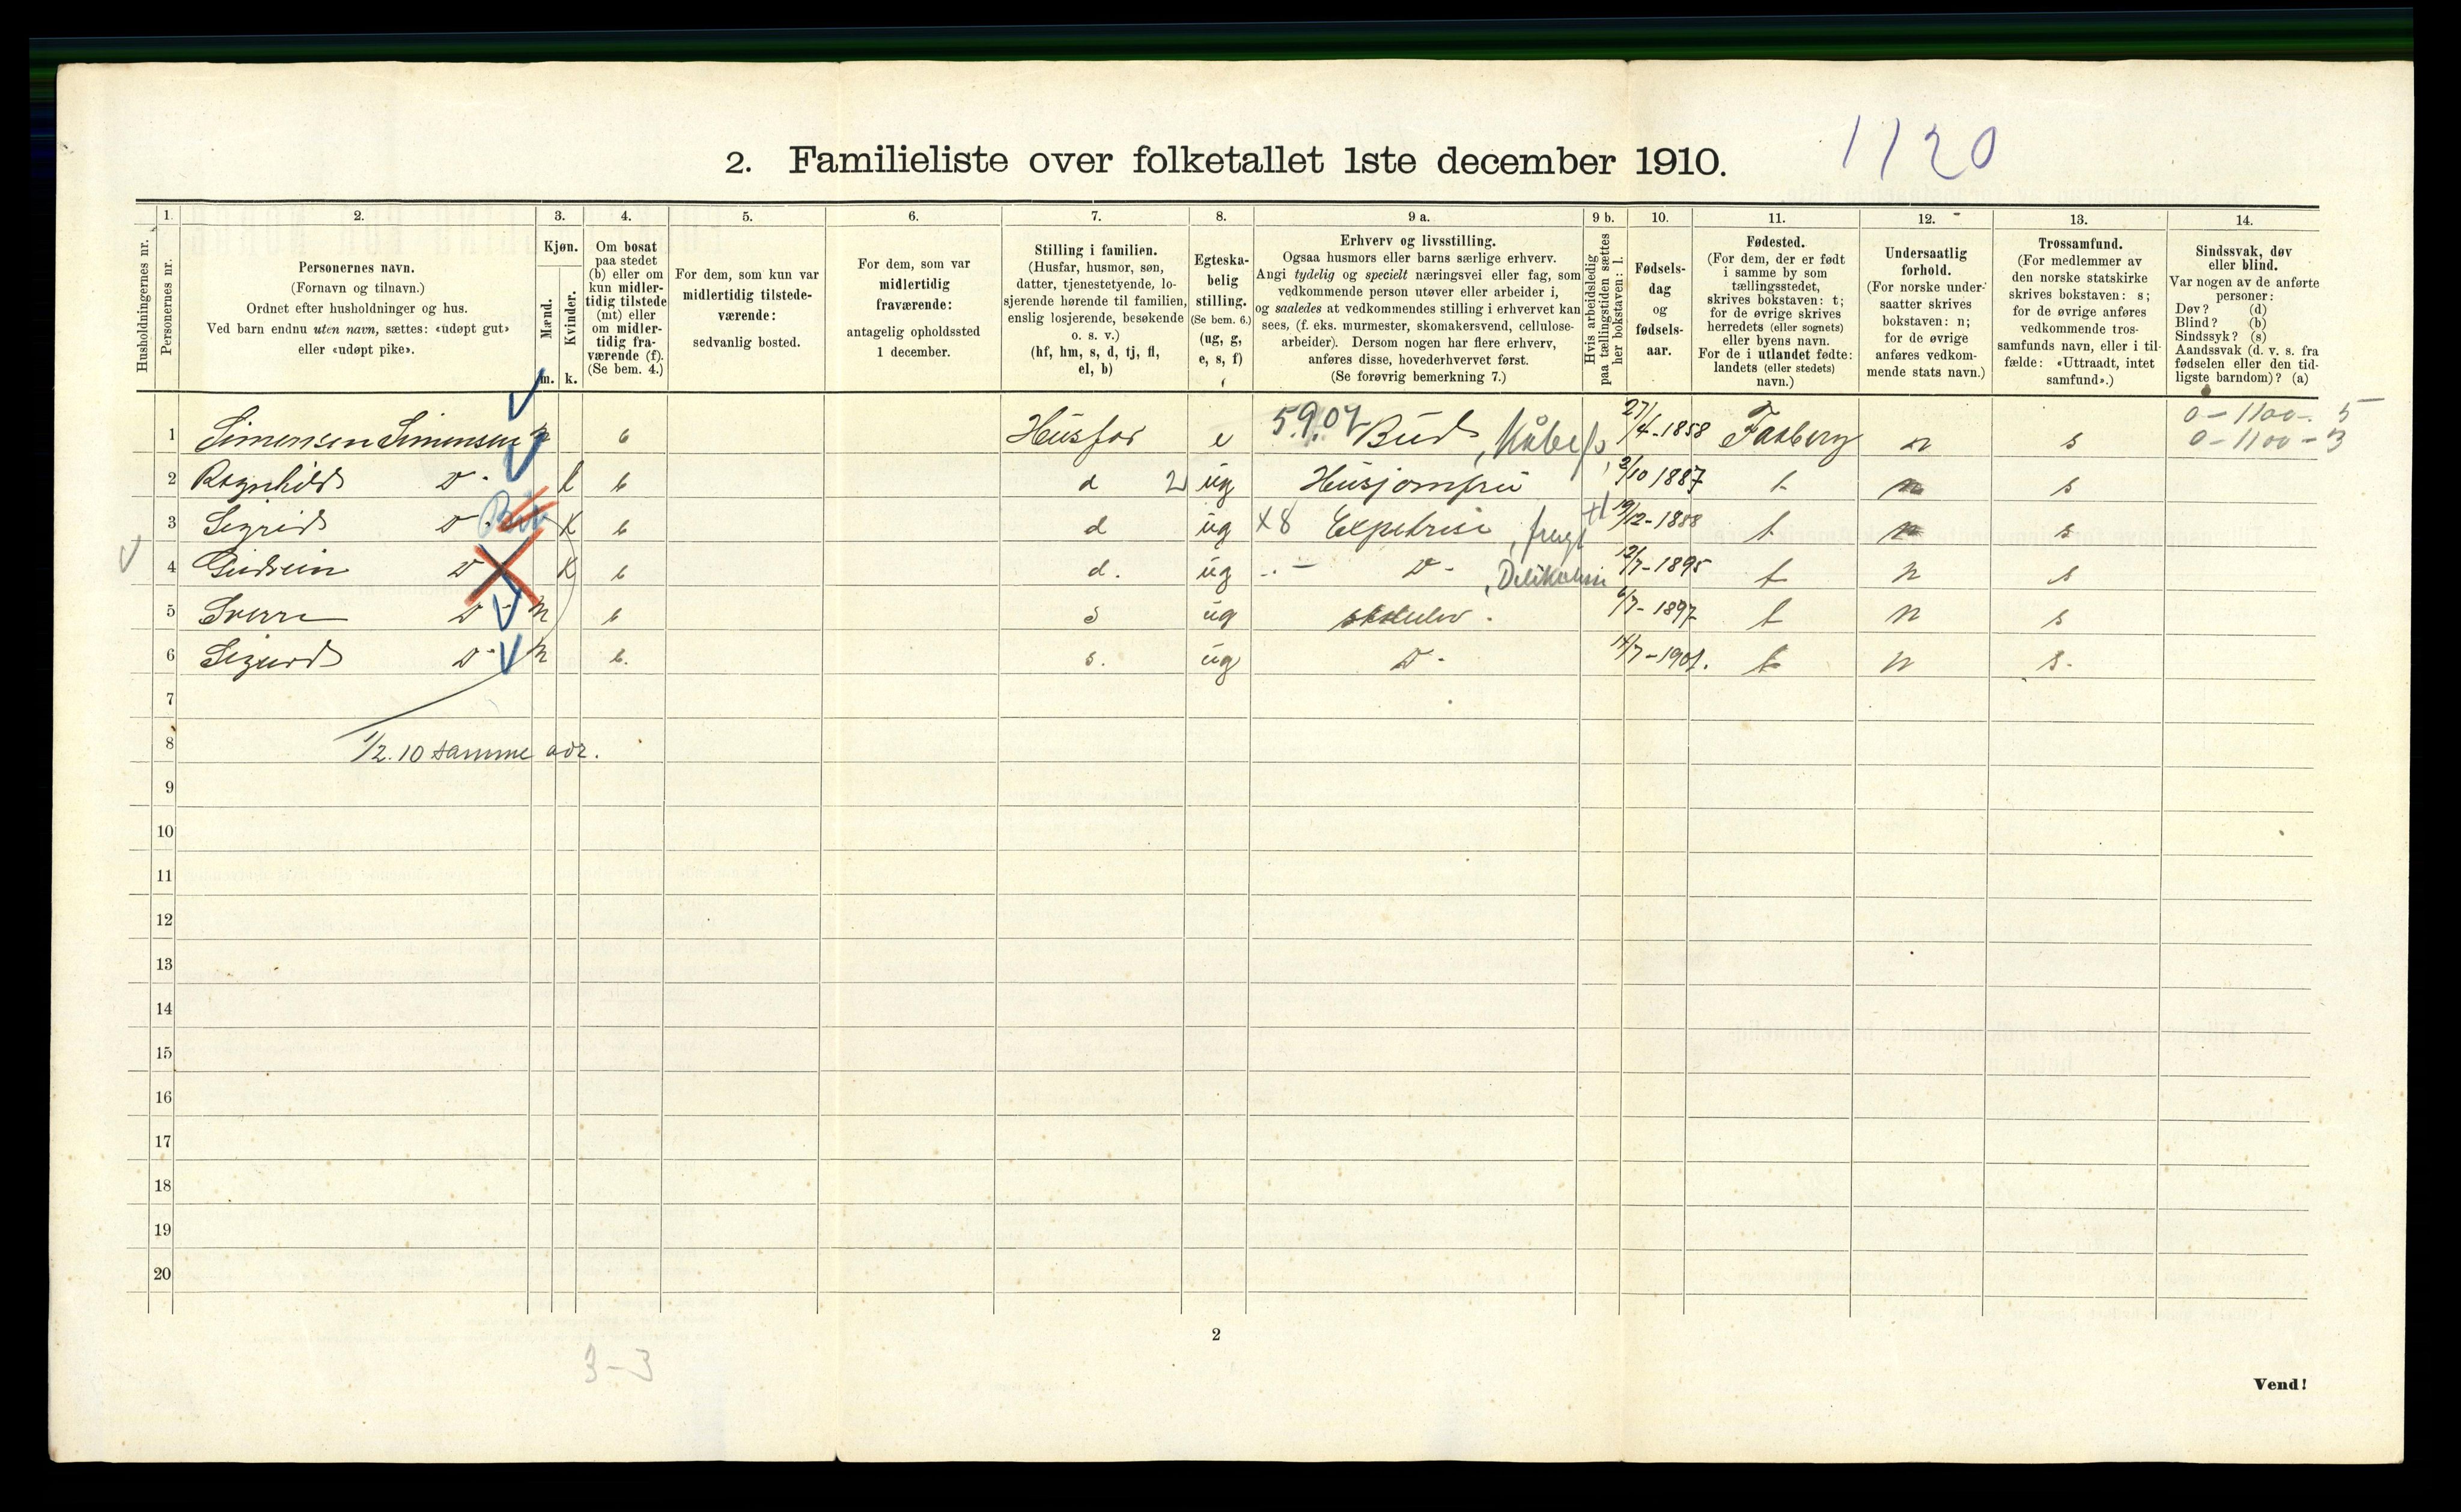 1120
2. Familieliste over folketallet 1ste december 1910.
Husholdningernes nr.
1.
Personernes nr.
2.
Personernes navn.
(Fornavn og tilnavn.)
Ordnet efter husholdninger og hus.
Ved barn endnu uten navn, sættes: «udøpt gut»
eller «udøpt pike».
3.
Kjøn.
Mænd.
m.
Kvinder.
k.
4.
Om bosat
paa stedet
(b) eller om
kun midler-
tidig tilstede
(mt) eller
om midler-
tidig fra-
værende (f).
(Se bem. 4.)
5.
For dem, som kun var
midlertidig tilstede-
værende:
sedvanlig bosted.
6.
For dem, som var
midlertidig
fraværende:
antagelig opholdssted
1 december.
7.
Stilling i familien.
(Husfar, husmor, søn,
datter, tjenestetyende, lo-
sjerende hørende til familien,
enslig losjerende, besøkende
o. s. v.)
(hf, hm, s, d, tj, fl,
el, b)
8.
Egteska-
belig
stilling.
(Se bem. 6.)
(ug, g,
e, s, f)
9 a.
Erhverv og livsstilling.
Ogsaa husmors eller barns særlige erhverv.
Angi tydelig og specielt næringsvei eller fag, som
vedkommende person utøver eller arbeider i,
og saaledes at vedkommendes stilling i erhvervet kan
sees, (f. eks. murmester, skomakersvend, cellulose-
arbeider). Dersom nogen har flere erhverv,
anføres disse, hovederhvervet først.
(Se forøvrig bemerkning 7.)
9 b.
Hvis arbeidsledig
paa tællingstiden sættes
her bokstaven: l.
10.
Fødsels-
dag
og
fødsels-
aar.
11.
Fødested.
(For dem, der er født
i samme by som
tællingsstedet,
skrives bokstaven: t;
for de øvrige skrives
herredets (eller sognets)
eller byens navn.
For de i utlandet fødte:
landets (eller stedets)
navn.)
12.
Undersaatlig
forhold.
(For norske under-
saatter skrives
bokstaven: n;
for de øvrige
anføres vedkom-
mende stats navn.)
13.
Trossamfund.
(For medlemmer av
den norske statskirke
skrives bokstaven: s;
for de øvrige anføres
vedkommende tros-
samfunds navn, eller i til-
fælde: «Uttraadt, intet
samfund».)
14.
Sindssvak, døv
eller blind.
Var nogen av de anførte
personer:
Døv? (d)
Blind? (b)
Sindssyk? (s)
Aandssvak (d. v. s. fra
fødselen eller den tid-
ligste barndom)? (a)
0-1100-5
1 Simensen Simensen m b Husfar e 59.07 Bud 27/4-1858 Faaberg n s 0-1100-3
2 Ragnhild D- k b d 2 ug Husjomfru 2/10 1887 t n s
3 Sigrid D- k b d ug X8 Expetrise, frugt 19/12-1888 t n s
4 Gudrun D k b d. ug -.- D-, Delikatesse 12/7-1895 t n s
5 Sverre D- m b s ug skoleelev. 6/7-1897 t n s
6 Sigurd D- m b. s. ug D- 14/7-1901. t n s.
7
8 1/2.10 samme adr.
9
10
11
12
13
14
15
16
17
18
19
20
2
3-3
Vend!